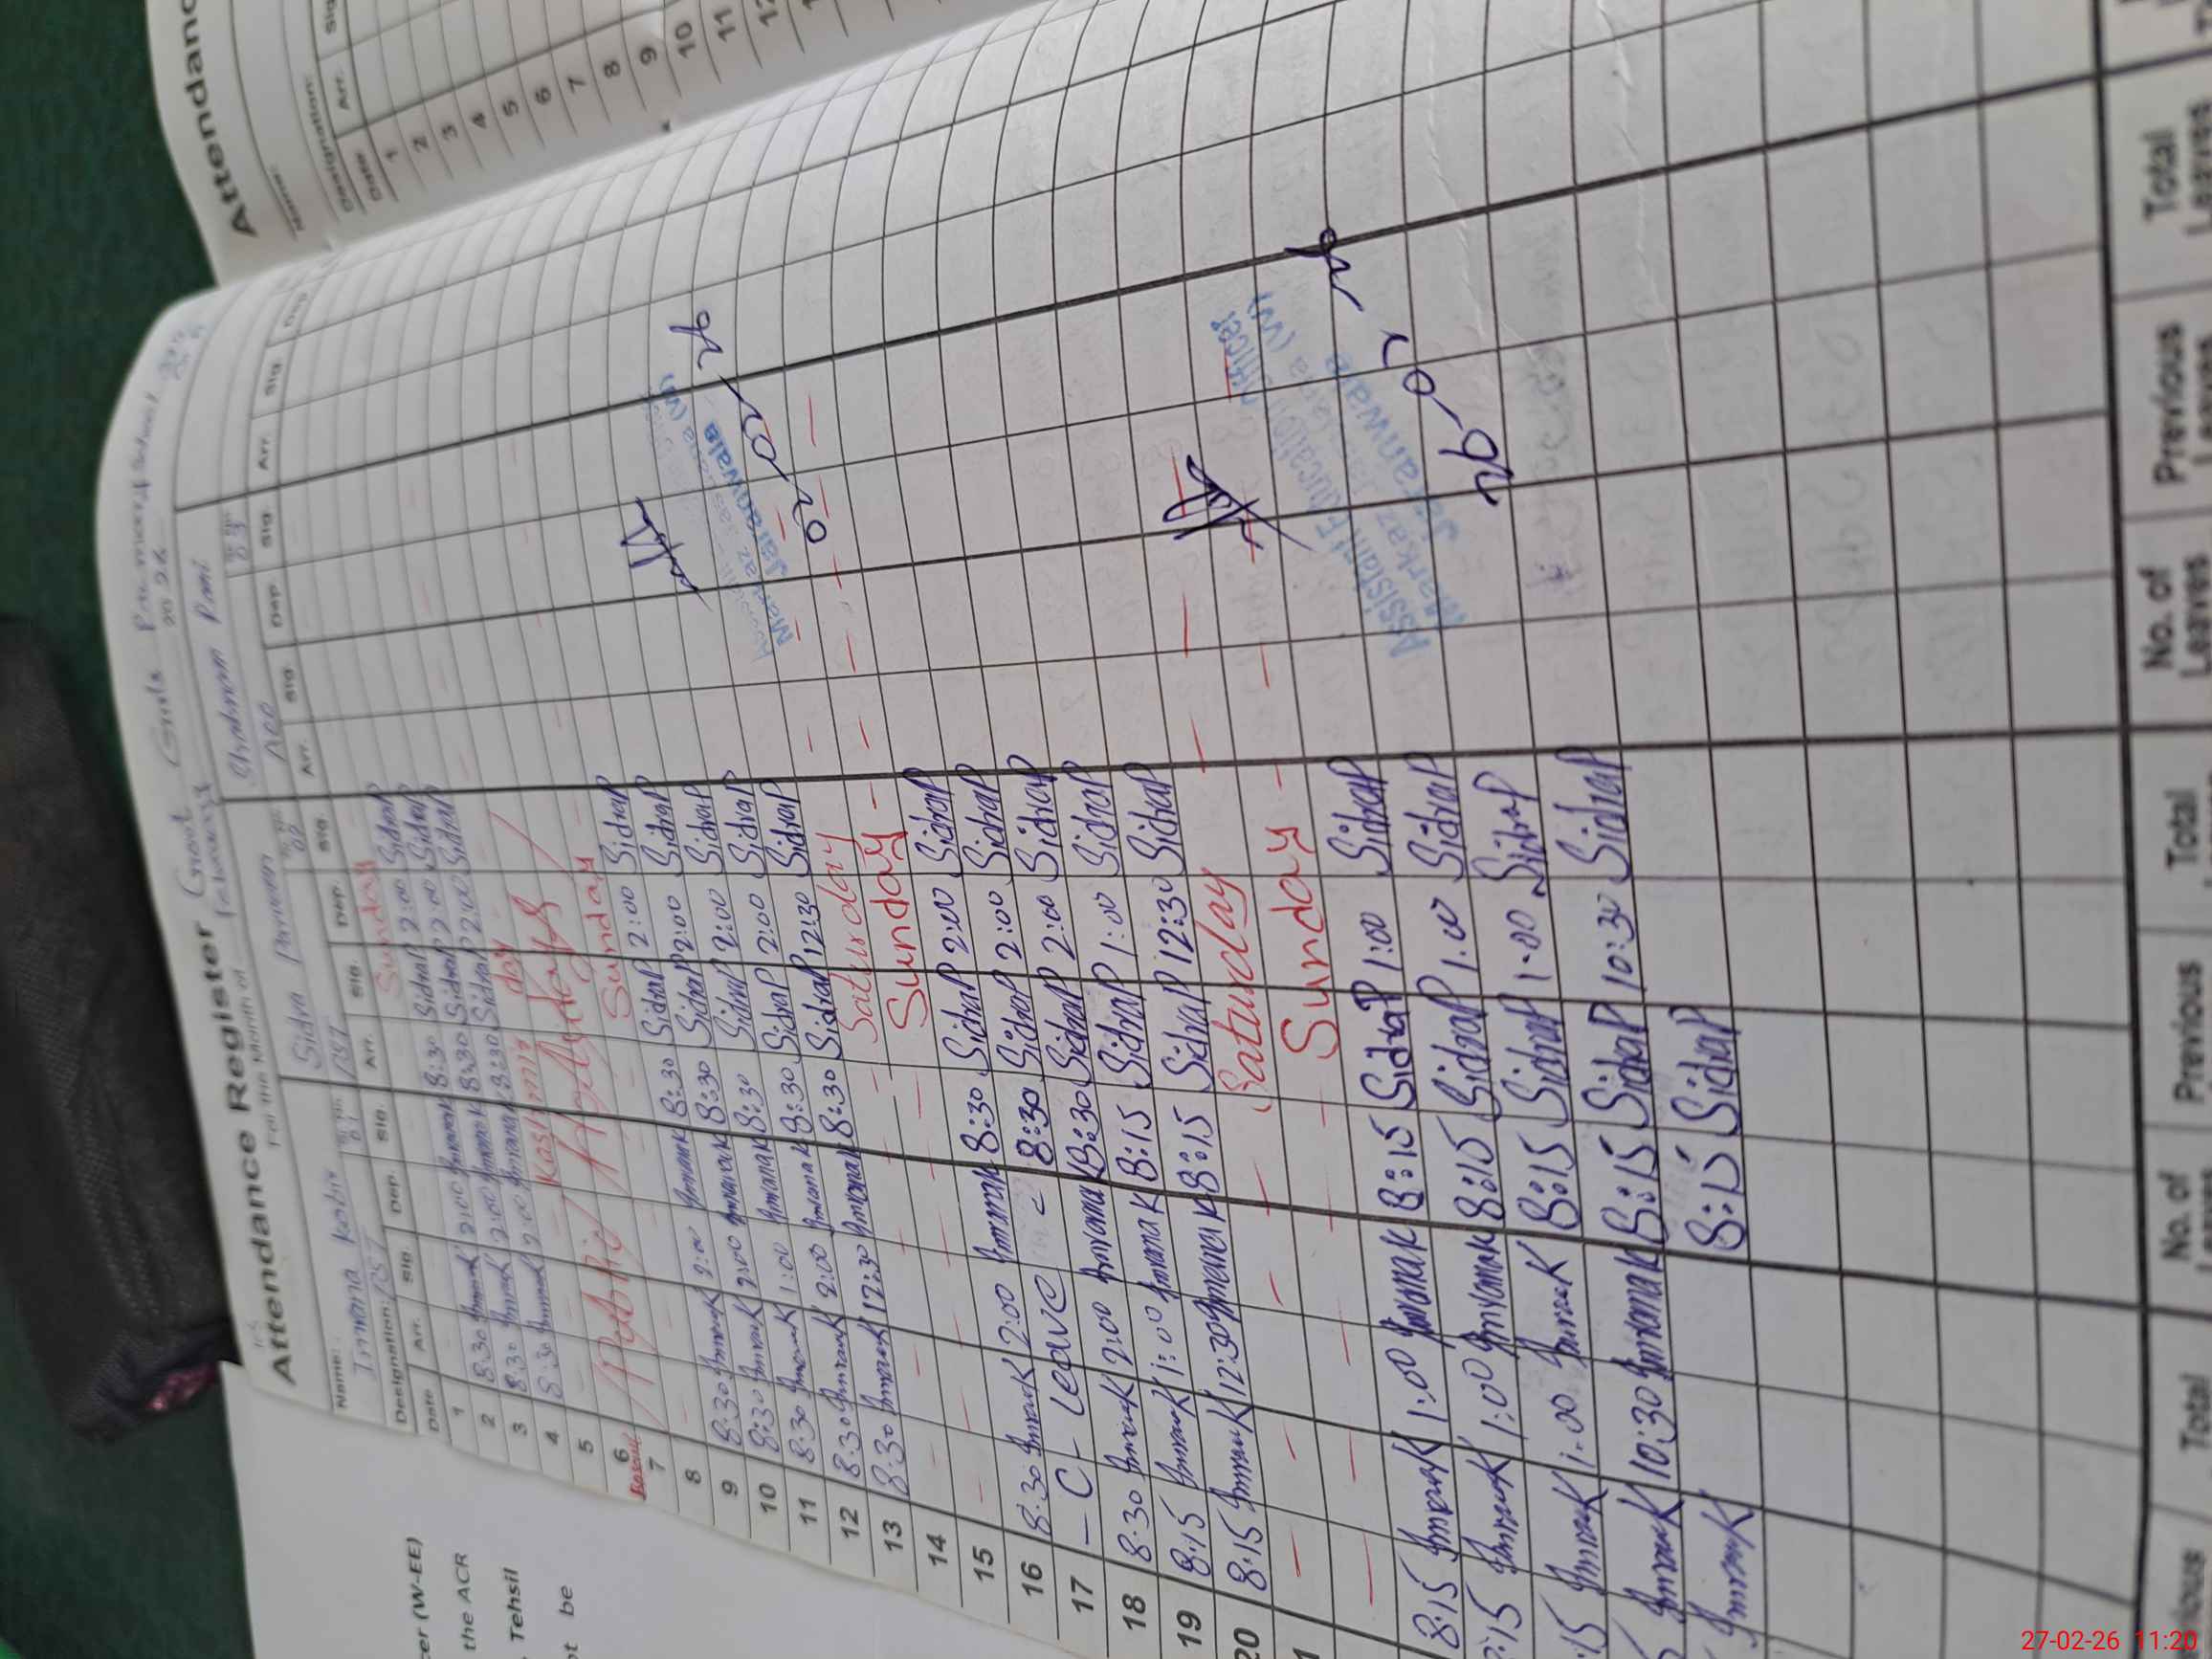 Attendance Register Govt Girls Primary School
For the Month of February 2026
Name: Imrana Kabir Sidra Parveen Shabnam
Designation: PST PST AEO
Date Arr. Sig. Dep. Sig. Arr. Sig. Dep. Sig. Arr. Sig Dep Sig. Arr. Sig Dep
1 Sunday
2 8:30 ImranaK 2:00 ImranaK 8:30 SidraP 2:00 SidraP
3 8:30 ImranaK 2:00 ImranaK 8:30 SidraP 2:00 SidraP
4 8:30 ImranaK 2:00 ImranaK 8:30 SidraP 2:00 SidraP
5 Kashmir day
6
7
8 Sunday
9 8:30 ImranaK 2:00 ImranaK 8:30 SidraP 2:00 SidraP
10 8:30 ImranaK 2:00 ImranaK 8:30 SidraP 2:00 SidraP
11 8:30 ImranaK 1:00 ImranaK 8:30 SidraP 2:00 SidraP
12 8:30 ImranaK 2:00 ImranaK 8:30 SidraP 2:00 SidraP
13 8:30 ImranaK 12:30 ImranaK 8:30 SidraP 12:30 SidraP
14 Saturday
15 Sunday
16 8:30 ImranaK 2:00 ImranaK 8:30 SidraP 2:00 SidraP
17 C - Leave 8:30 SidraP 2:00 SidraP
18 8:30 ImranaK 2:00 ImranaK 8:30 SidraP 2:00 SidraP
19 8:15 ImranaK 1:00 ImranaK 8:15 SidraP 1:00 SidraP
20 8:15 ImranaK 12:30 ImranaK 8:15 SidraP 12:30 SidraP
Saturday
Sunday
8:15 ImranaK 1:00 ImranaK 8:15 SidraP 1:00 SidraP
:15 ImranaK 1:00 ImranaK 8:15 SidraP 1:00 SidraP
:15 ImranaK 1:00 ImranaK 8:15 SidraP 1:00 SidraP
ImranaK 10:30 ImranaK 8:15 SidraP 10:30 SidraP
ImranaK 8:15 SidraP
Markaz
Jaranwala
Assistant Education Officer
Markaz
Jaranwala
Previous Total No. of Leaves Previous Total No. of Leaves Previous Leaves Total Leaves
Attendanc
Name:
Designation:
Date Arr. Sig
1
2
3
4
5
6
7
8
9
10
11
12
cer (W-EE)
the ACR
Tehsil
ot be
27-02-26 11:20